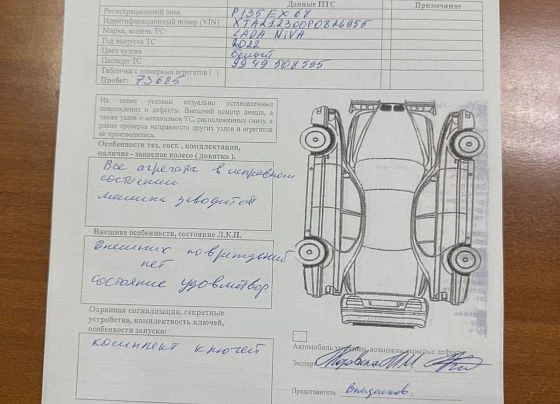 Данные ПТС Примечание
Регистрационный знак Р135ЕХ68
Идентификационный номер (VIN)
Марка, модель ТС LADA NIVA
Год выпуска ТС 2022
Цвет кузова
Паспорт ТС
Табличка с номерами агрегатов
Пробег: 73685
На схеме указаны визуально установленные
повреждения и дефекты. Внешний осмотр днища, а
также узлов и механизмов ТС, расположенных снизу, а
равно проверка исправности других узлов и агрегатов
не производились.
Особенности тех. сост. , комплектации,
наличие - запасное колесо ( докатка ).
Все агрегата в исправном
состоянии
машина заводится
Внешние особенности, состояние Л.К.П.
Внешних повреждений
нет
состояние удовлетвор
Охранная сигнализация, секретные
устройства, комплектность ключей,
особенности запуска:
комплект ключей
Автомобиль возможны скрытые дефекты
Эксперт
Представитель